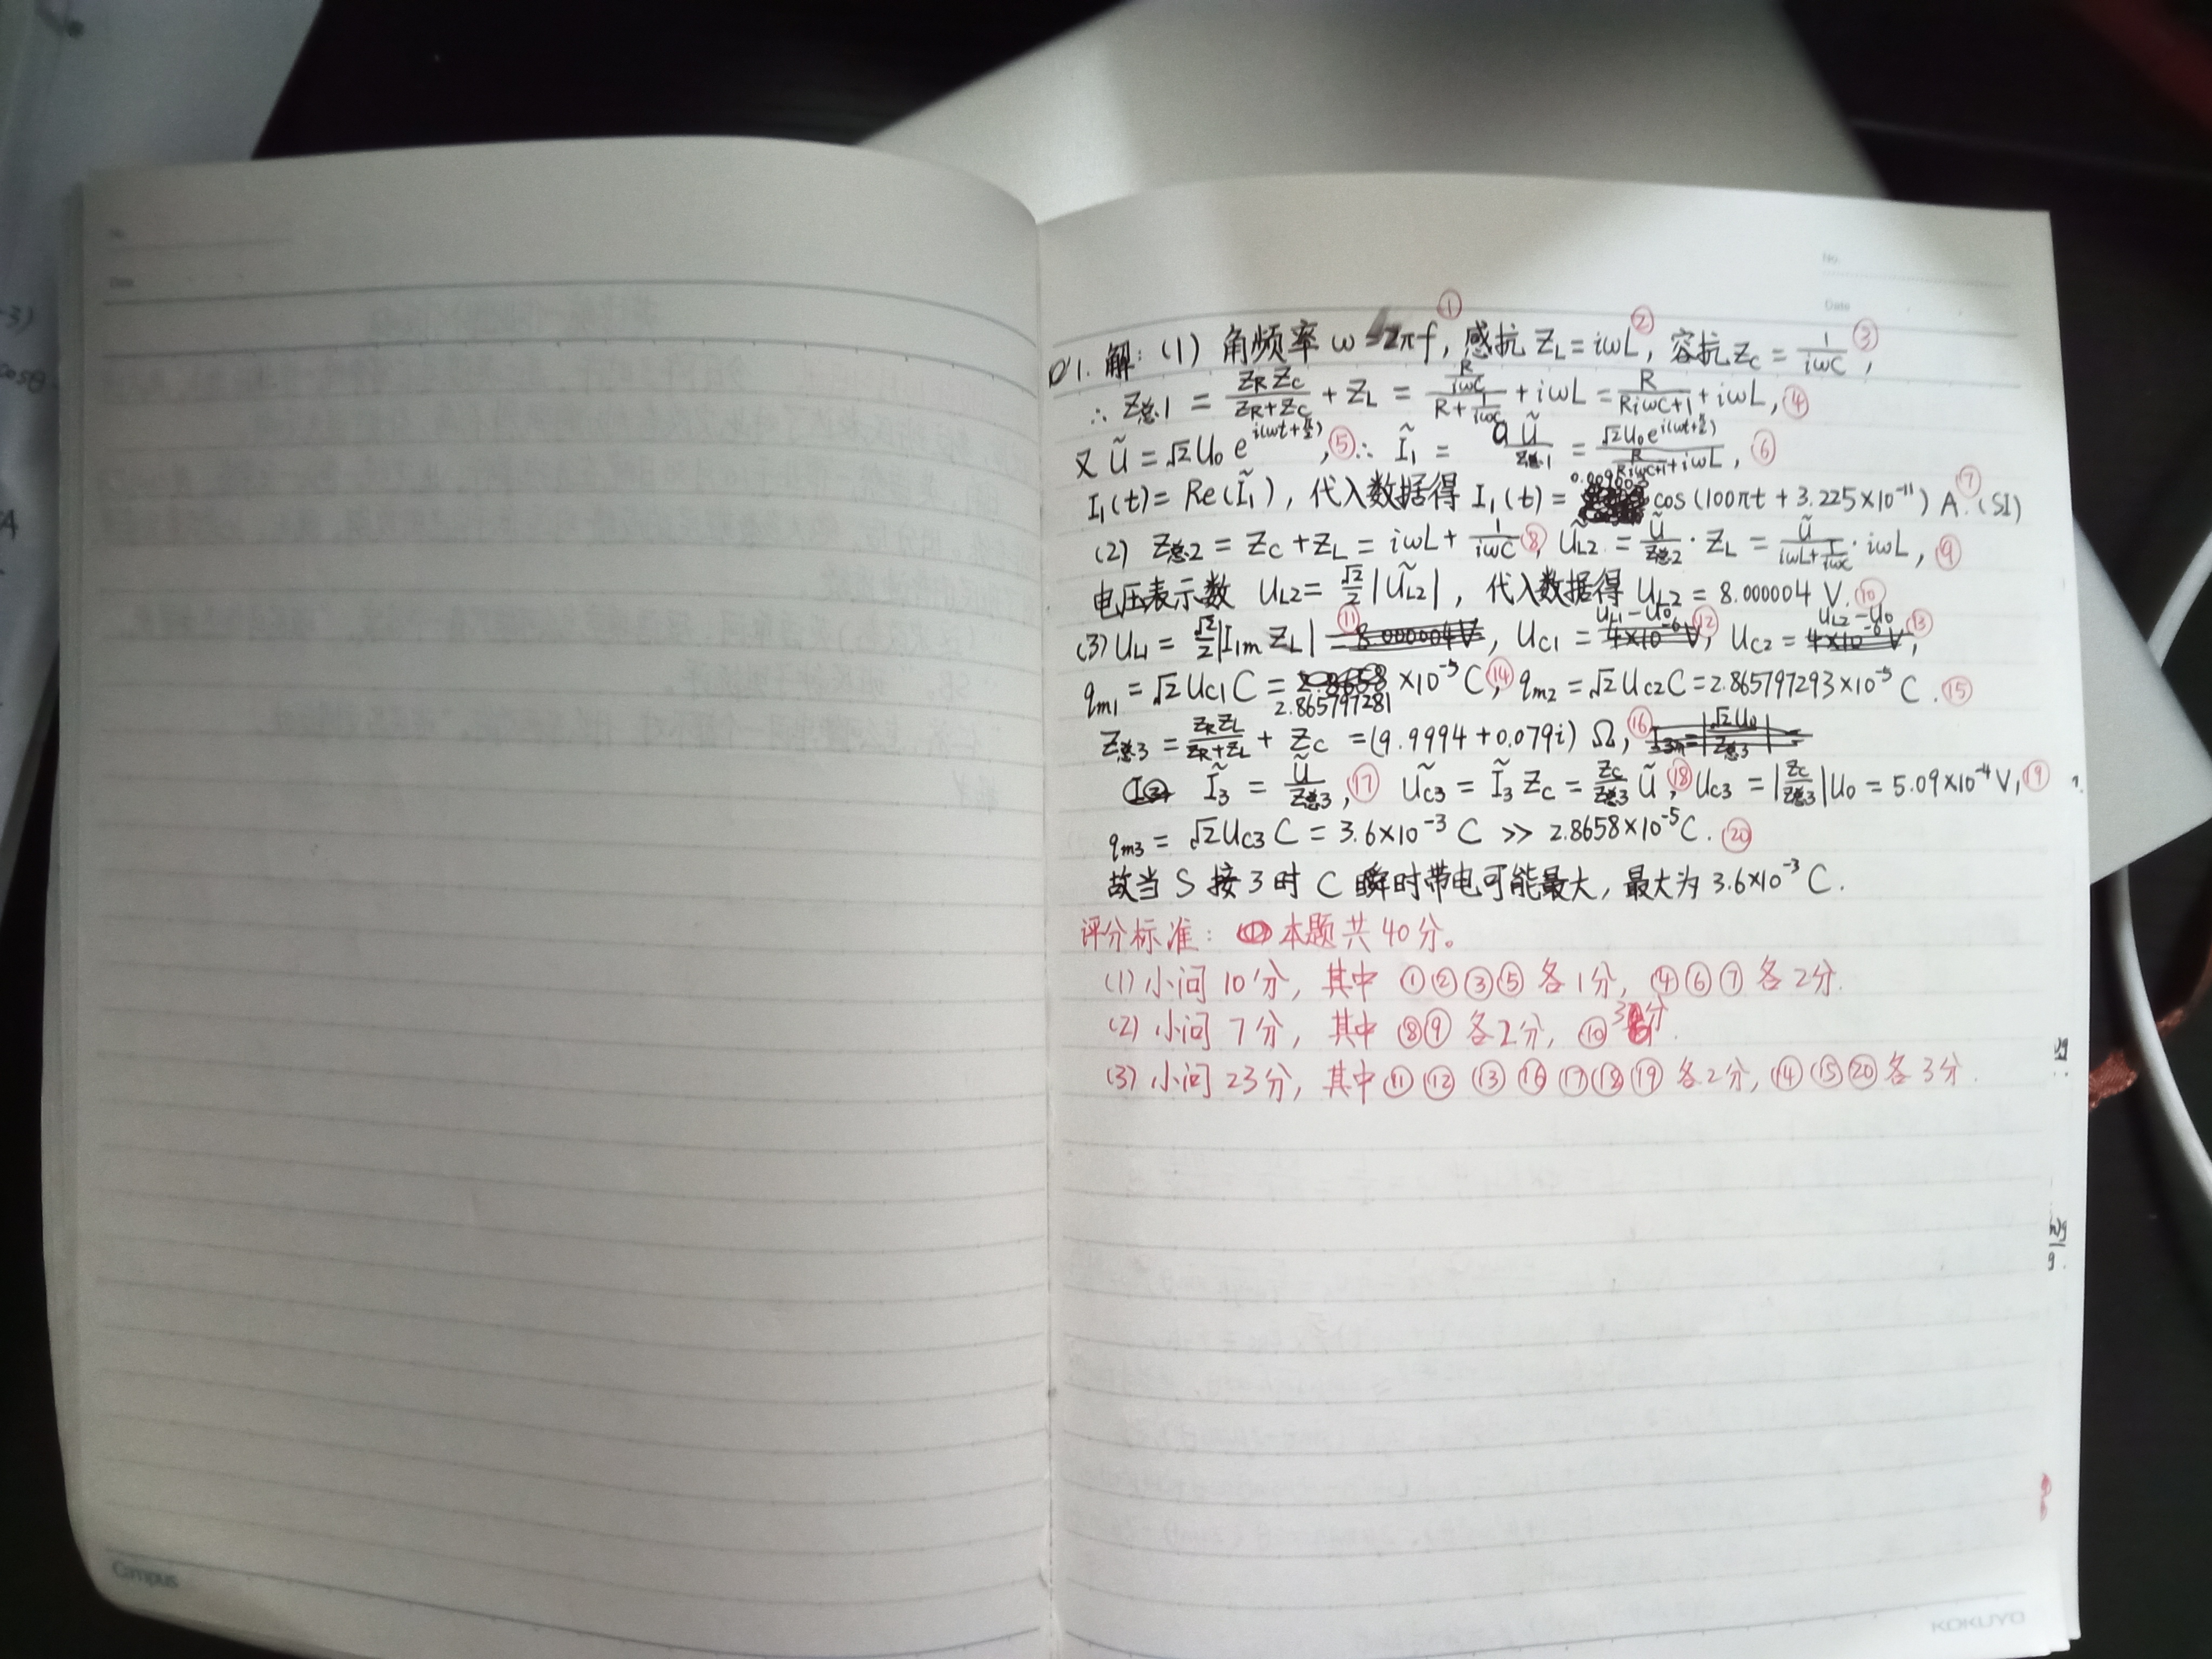 No.
Date
No.
Date
1. 解: (1) 角频率 ω = 2πf, ① 感抗 Z_L = iωL, ② 容抗 Z_C = 1/(iωC), ③
∴ Z总1 = Z_R Z_C/(Z_R+Z_C) + Z_L = (R/(iωC))/(R + 1/(iωC)) + iωL = R/(RiωC+1) + iωL, ④
又 Ũ = √2 U₀ e^{i(ωt+π/2)}, ⑤ ∴ Ĩ₁ = Ũ/Z总1 = √2U₀e^{i(ωt+π/2)}/(R/(RiωC+1)+iωL), ⑥
I₁(t) = Re(Ĩ₁), 代入数据得 I₁(t) = 0.009003 cos(100πt + 3.225×10⁻¹¹) A. ⑦ (SI)
(2) Z总2 = Z_C + Z_L = iωL + 1/(iωC) ⑧, Ũ_L2 = Ũ/Z总2 · Z_L = Ũ/(iωL+1/(iωC)) · iωL, ⑨
电压表示数 U_L2 = √2/2 |Ũ_L2|, 代入数据得 U_L2 = 8.000004 V. ⑩
(3) U_L1 = √2/2 |I_1m Z_L| ⑪, U_C1 = U_L1 - U₀ ⑫, U_C2 = U_L2 - U₀ ⑬,
q_m1 = √2 U_C1 C = 2.865797281 ×10⁻⁵ C, ⑭ q_m2 = √2 U_C2 C = 2.865797293×10⁻⁵ C. ⑮
Z总3 = Z_R Z_L/(Z_R+Z_L) + Z_C = (9.9994+0.079i) Ω, ⑯
Ĩ₃ = Ũ/Z总3, ⑰ Ũ_C3 = Ĩ₃ Z_C = Z_C/Z总3 Ũ, ⑱ U_C3 = |Z_C/Z总3| U₀ = 5.09×10⁻⁴ V, ⑲
q_m3 = √2 U_C3 C = 3.6×10⁻³ C >> 2.8658×10⁻⁵ C. ⑳
故当 S 接 3 时 C 瞬时带电可能最大, 最大为 3.6×10⁻³ C.
评分标准: 本题共 40 分。
(1) 小问 10 分, 其中 ①②③⑤ 各 1 分, ④⑥⑦ 各 2 分.
(2) 小问 7 分, 其中 ⑧⑨ 各 2 分, ⑩ 3 分.
(3) 小问 23 分, 其中 ⑪ ⑫ ⑬ ⑯ ⑰ ⑱ ⑲ 各 2 分, ⑭ ⑮ ⑳ 各 3 分.
Campus
KOKUYO